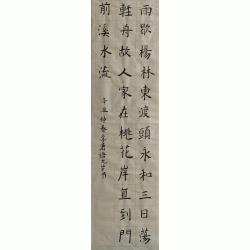 雨歇楊林東渡頭永和三日蕩
輕舟故人家在桃花岸直到門
前溪水流
辛丑仲春